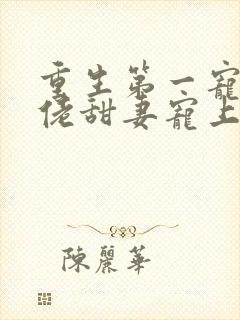 重生第一寵
佬甜妻寵上
陳麗華